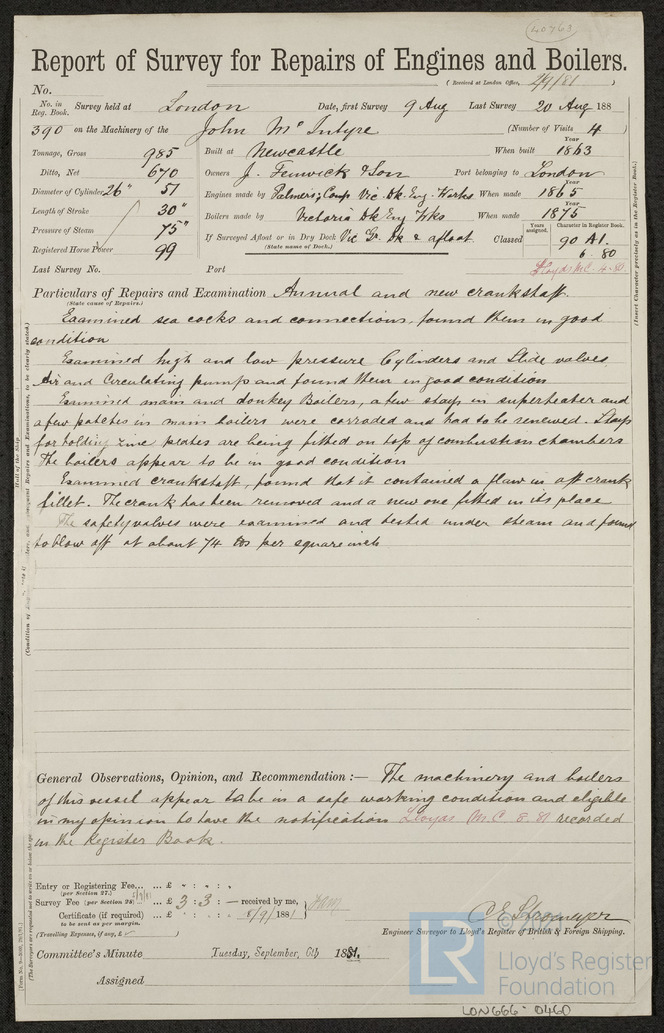 40763
Report of Survey for Repairs of Engines and Boilers.
No.
(Received at London Office, 2/9/81)
No. in Reg. Book. Survey held at London Date, first Survey 9 Aug Last Survey 20 Aug 188
390 on the Machinery of the John McIntyre (Number of Visits 4)
Tonnage, Gross 985 Built at Newcastle When built Year 1863
Ditto, Net 670 Owners J. Fenwick & Son Port belonging to London
Diameter of Cylinder 26" 51 Engines made by Palmers; Comp Vic. Dk. Eng. Works When made Year 1865
Length of Stroke 30" Boilers made by Victoria Dk Eng Wks When made Year 1875
Pressure of Steam 75" If Surveyed Afloat or in Dry Dock Vic Gr. Dk & afloat Classed Years assigned. Character in Register Book. 90 A1.
Registered Horse Power 99 (State name of Dock.) 6.80
Last Survey No. Port Lloyds M.C. 4.80
Particulars of Repairs and Examination Annual and new crankshaft.
(State cause of Repairs.)
Examined sea cocks and connections, found them in good
condition
Examined high and low pressure Cylinders and Slide valves,
Air and Circulating pump and found them in good condition
Examined main and donkey Boilers, a few stays in superheater and
a few patches in main boilers were corroded and had to be renewed. Stays
for holding zinc plates are being fitted on top of combustion chambers
The boilers appear to be in good condition
Examined crankshaft, found that it contained a flaw in aft crank
fillet. The crank has been removed and a new one fitted in its place
The safety valves were examined and tested under steam and found
to blow off at about 74 lbs per square inch
General Observations, Opinion, and Recommendation :— The machinery and boilers
of this vessel appear to be in a safe working condition and eligible
in my opinion to have the notification Lloyds M.C. 8.81 recorded
in the Register Book.
Entry or Registering Fee... ... £ : :
(per Section 27.)
Survey Fee (per Section 28) ... £ 3 : 3 : — received by me,
Certificate (if required) ... £ : : 8/9/1881
to be sent as per margin.
(Travelling Expenses, if any, £ )
C E Stromeyer
Engineer Surveyor to Lloyd's Register of British & Foreign Shipping.
Committee's Minute Tuesday, September, 6th 1881.
Assigned
(Insert Character precisely as in the Register Book.)
©
LR
Lloyd's Register
Foundation
LON666-0460